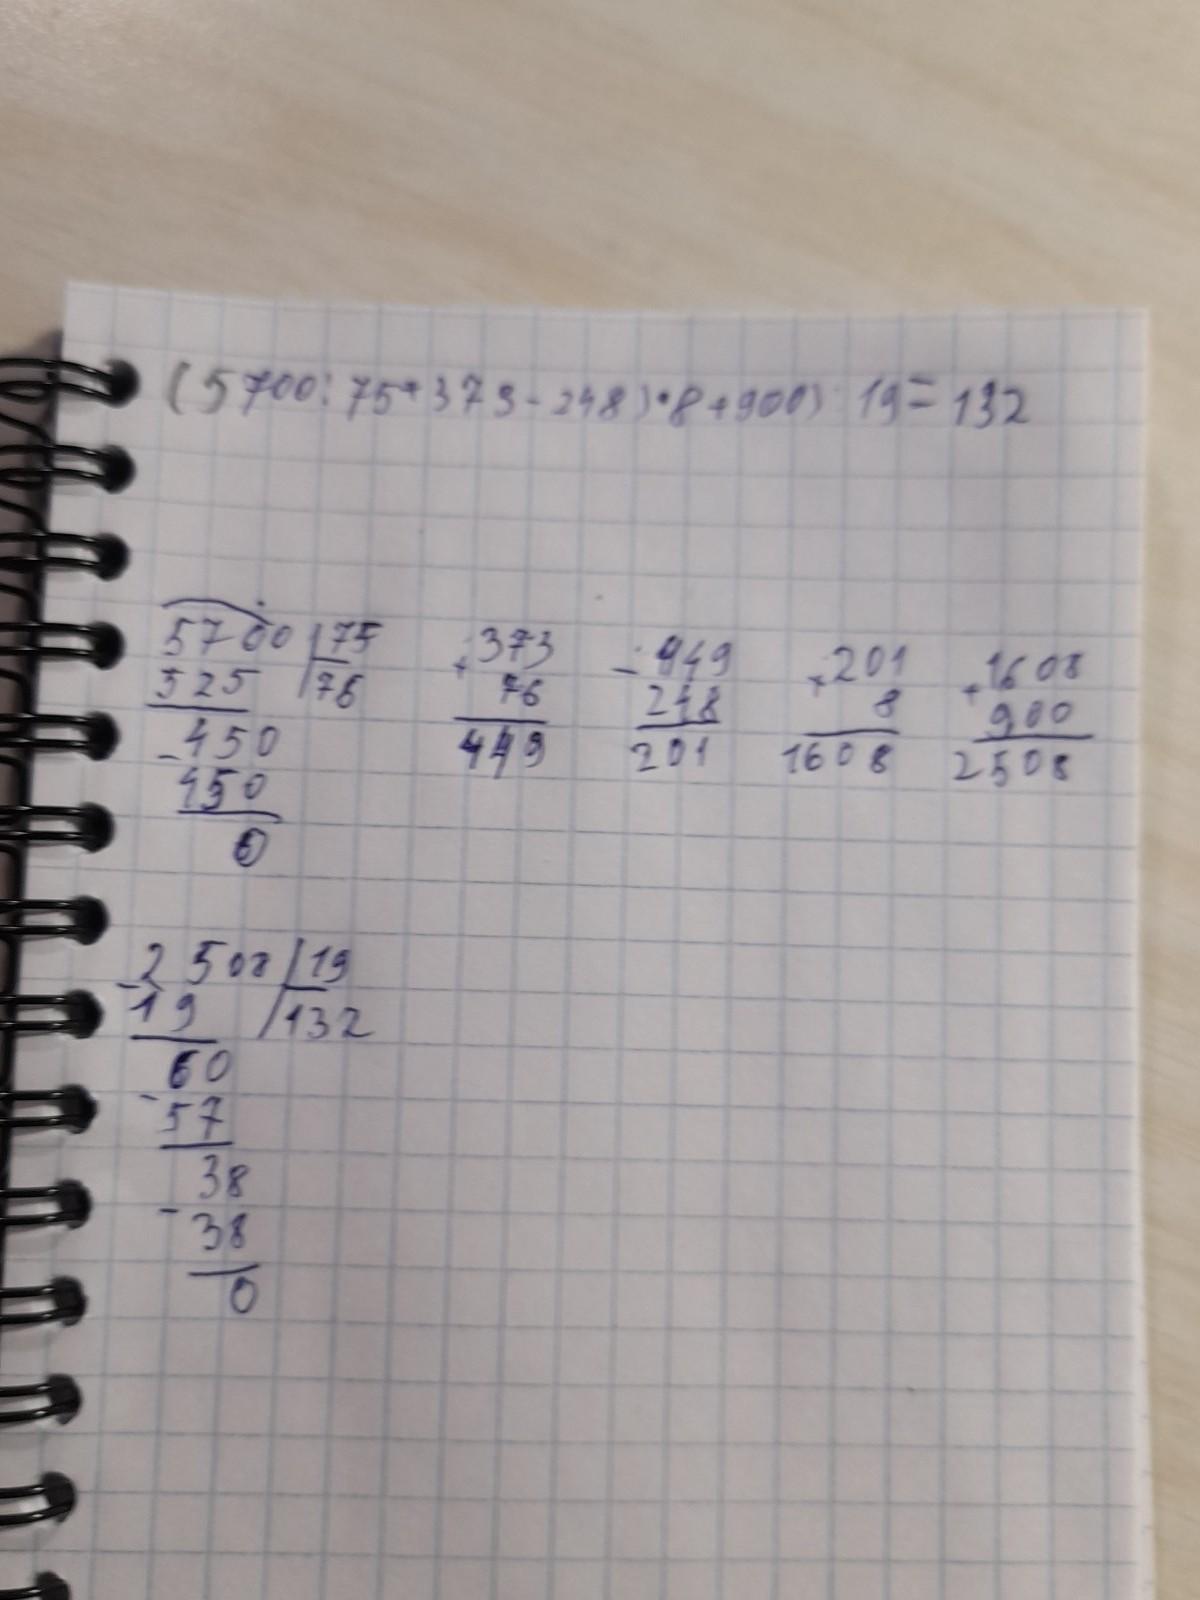 (5700:75+373-248)•8+900):19=132
5700 75
525 76
-450
450
0
+373
76
449
-449
248
201
×201
8
1608
+1608
900
2508
-2508 19
19 132
60
-57
38
-38
0